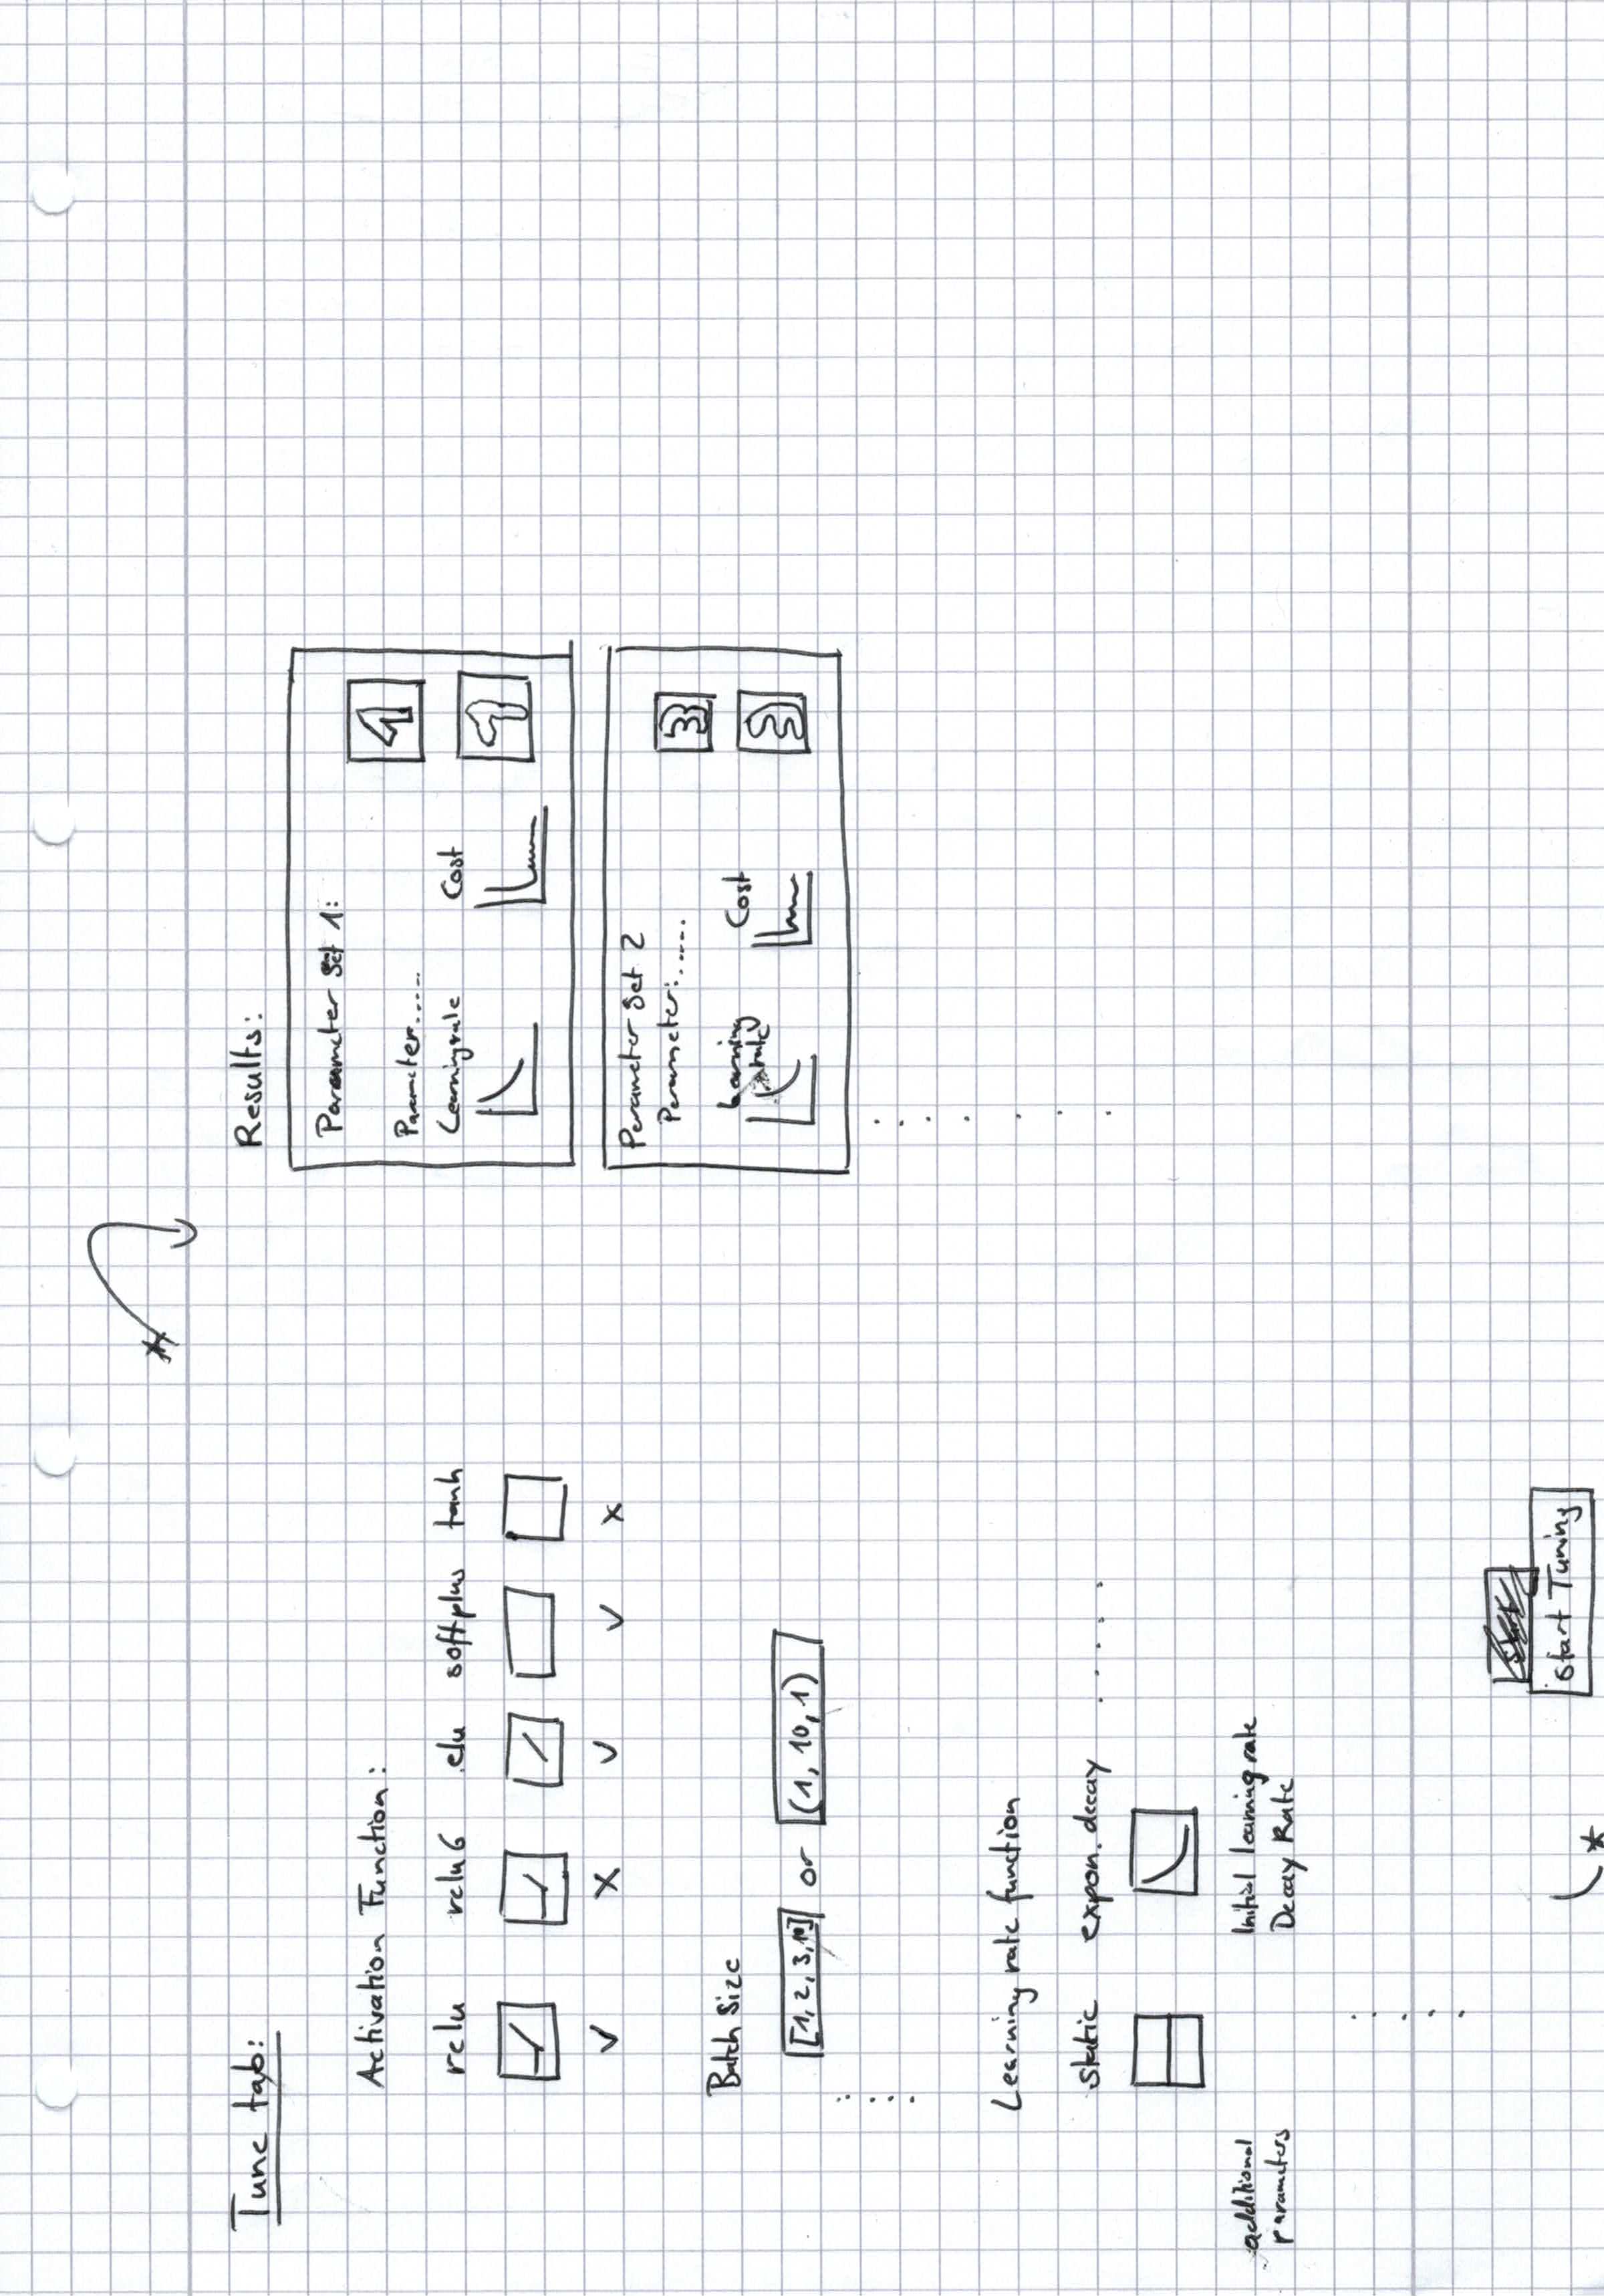 Tune tab:
Activation Function:
relu relu6 elu softplus tanh
Batch Size
[1, 2, 3, 10] or (1, 10, 1)
Learning rate function
static expon. decay .....
additional parameters
Initial learning rate
Decay Rate
start Tuning
Results:
Parameter Set 1:
Parameter.....
Learningrate Cost
1
1
Parameter Set 2
Parameter:.....
Learning rate
Cost
3
3